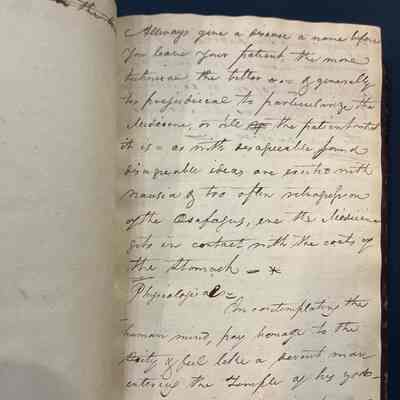 Allways give a disease a name before
you leave your patient the more
technical the better & generally
too prejudicial to particularize the
Medicine, or tell the patient what
it is = as with disagreeable food
disagreeable ideas are excited with
nausia & too often retrogression
of the Esofagus, ere the Medicine
gets in contact with the coats of
the Stomach
Physiological
In contemplating the
human mind, pay homage to the
Deity & feel like a devout man
entering the Temple of his